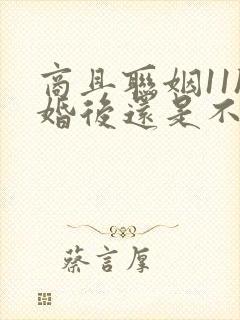 商且聯姻11
婚後還是不
蔡言厚